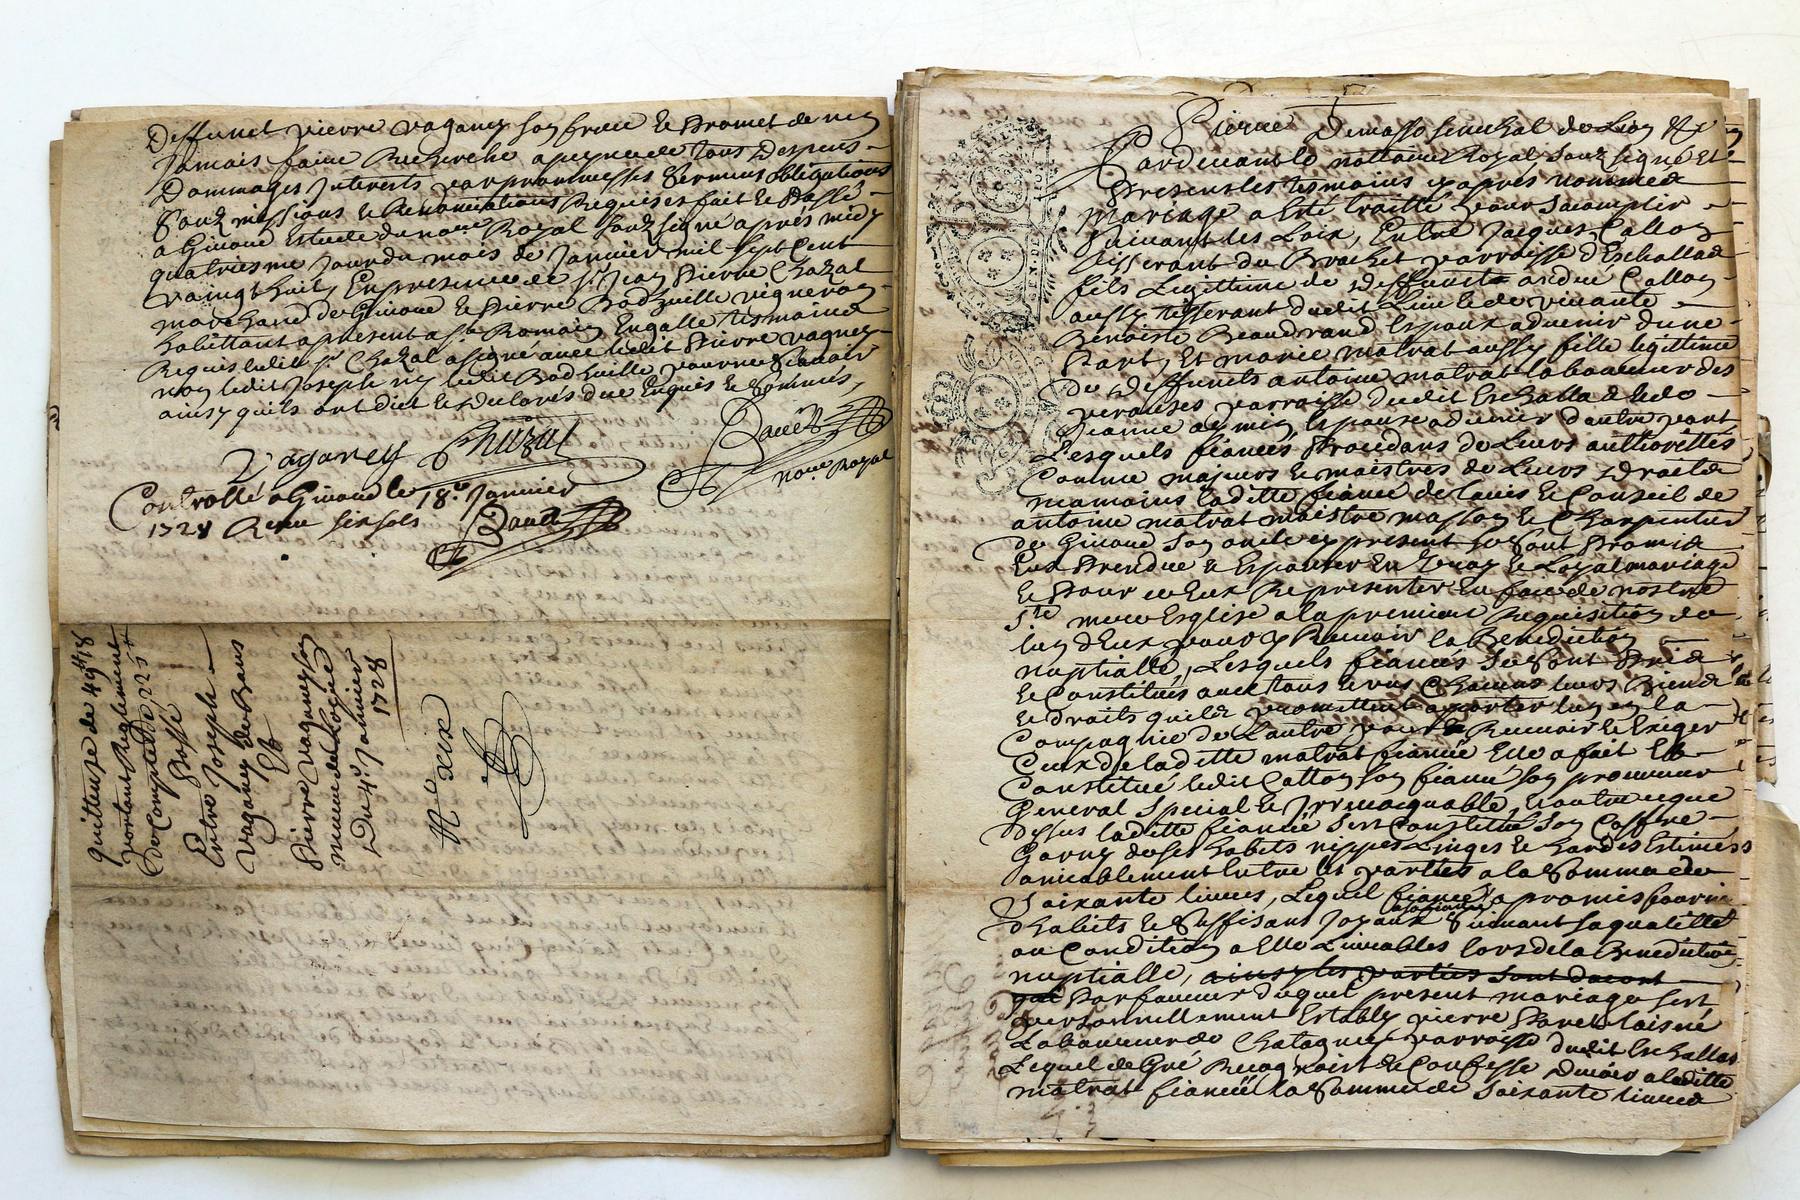 Deffunct pierre vaganey son frere Et Promet de n'en
Jamais faire Recherche a peyne de tous despens
Dommages Interets par promesses serment obligations
Soubmissions Et Renonciations Requises fait Et Passé
a Givord Estude du no.re Royal soubsigné aprés midy
quatriesme Jour du mois de Janvier mil sept Cent
vaingt huit, En presence de s.r Jean Pierre Chazal
marchand de Givord Et Pierre Badzuille vigneron
habittant a present a s.t Romain Engalle tesmoins
Requis ledit s.r Chazal a signé avec ledit Pierre vaganey
non ledit Joseph ny ledit Badzuille pour ne scavoir
ainsy quils ont dict Et declarés due Enquis Et sommés,
vaganey Chazal
no.re Royal
Controllé a Givord le 18.e Janvier
1728 Receu six sols
quittense de
portant Reglement
De Compte de
Passé
Entre Joseph
Vaganey de Bans
Et
Pierre vaganey son
Du 4.e Janvier
1728
N.e xix
Pierre Demasso senechal de Lion &c
Pardevant le nottaire Royal soubsigné Et
Presents les tesmoins cy apres nommés
mariage a Esté traitté pour sacomplir
suivant les Loix, Entre Jacques Callon
tisserant du Brochet parroisse d'Eschallas
fils Legittime de deffunct andré Callon
aussy tisserant dudit Lieu Et de vivante
Benoiste Beaudrand Espoux advenir d'une
Part, Et marie matrat aussy fille legittime
de deffunts antoine matrat laboureur des
parroisse dudit Eschallas Et de
Jeanne Espouse advenir d'autre part
Lesquels fiancés Procedans de Leurs authorittés
Comme majeurs Et maistres de Leurs droits
neamoins laditte fiancée de lavis Et Conseil de
antoine matrat maistre masson Et Charpentier
de Givord son oncle cy present se sont Promis
Eux Prendre & Espouser En vray Et Loyal mariage
Et Pour ce Eux Representer En face de nostre
S.te mere Esglise a la premiere Requisition de
lun d'Eux pour y Recevoir la Benediction
nuptialle, Lesquels fiancés se sont Pris
Et Constitués avec tous Et uns Chacuns leurs Biens
Et droits quils promettent aporter lun en la
Compagnie de Lautre pour Recevoir Et Exiger
Ceux de laditte matrat fiancée Elle a fait Et
Constitué ledit Callon son fiancé son procureur
General special Et Irrevocquable, Et outre ce que
dessus laditte fiancée sest Constitué son Coffre
Garny de ses habits nippes Linges Et hardes Estimés
amiablement Entre les parties a la somme de
soixante livres, Lequel fiancé a promis fournir
d'habits Et suffisant Joyaux suivant sa qualitté
ou Condition a Elle Livrables lors de la Benediction
nuptialle, ainsy les parties sont dacort
Par faveur duquel present mariage sest
personnellement Estably pierre laisné
Laboureur de parroisse dudit Eschallas
Lequel de Gré Recognoist Et Confesse devoir a laditte
matrat fiancée la somme de soixante livres